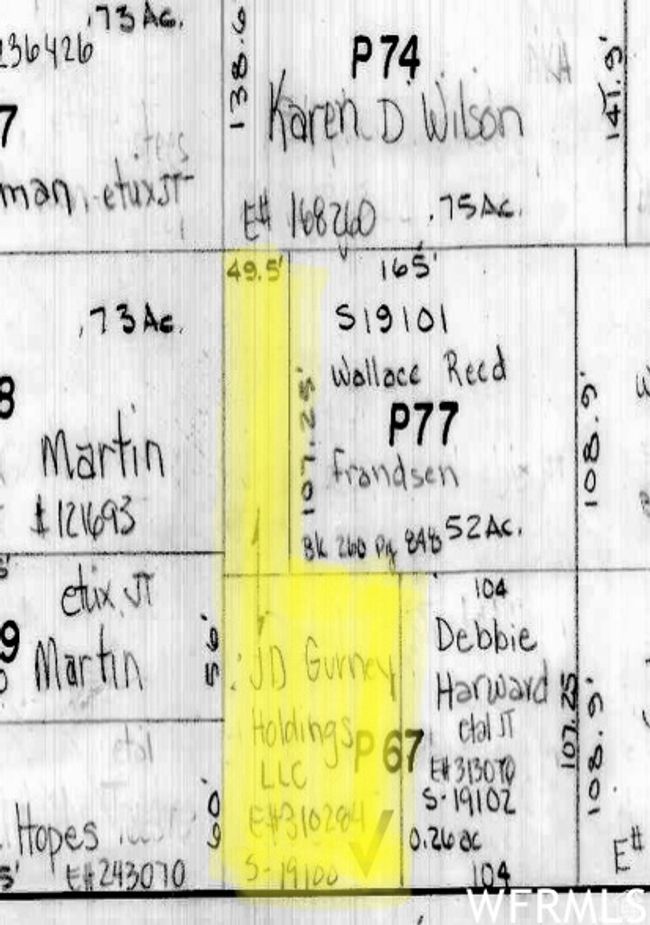 .73 Ac.
236426
7
man, etux JT
138.6
P74
Karen D Wilson
E# 168260 .75 Ac.
141.9'
49.5'
165'
.73 Ac.
8
Martin
121693
S19101
Wallace Reed
P77
Frandsen
Bk 260 Pg 848 .52 Ac.
107.25'
108.9'
etux JT
9
Martin
56'
JD Gurney
Holdings
LLC
P67
E# 310284
S-19100
104
Debbie
Harward
etal JT
E# 313070
S-19102
0.26 ac
104
107.25
108.9'
etal
Hopes
E# 243070
60'
E#
WFRMLS